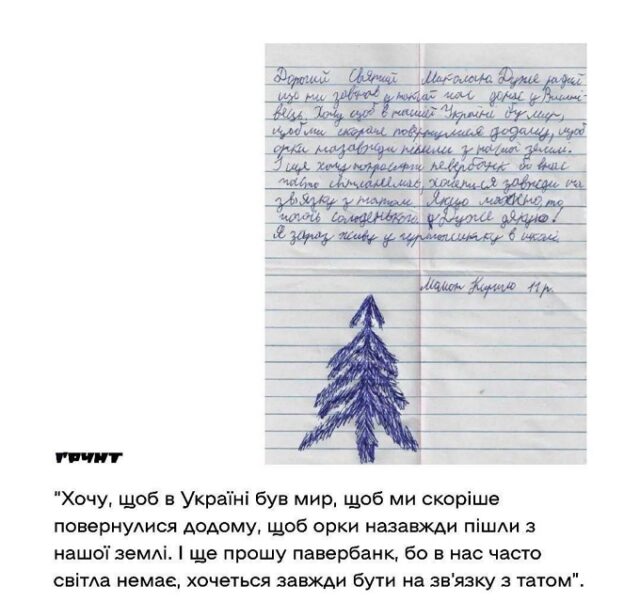 Дорогий Святий Миколаю. Дуже радий
що ти завітав у
вець. Хочу щоб в нашій Україні був мир,
щоб ми скоріш повернулися додому, щоб
орки назавжди пішли з нашої землі.
І ще хочу попросити повербанк бо в нас
часто світла немає, хочеться завжди на
зв'язку з татом. Якщо можно, то
чогось солоденького. Дуже дякую!
Я зараз живу у гуртожитку в школі
Кирило 11 р.
ГРУНТ
"Хочу, щоб в Україні був мир, щоб ми скоріше
повернулися додому, щоб орки назавжди пішли з
нашої землі. І ще прошу павербанк, бо в нас часто
світла немає, хочеться завжди бути на зв'язку з татом".